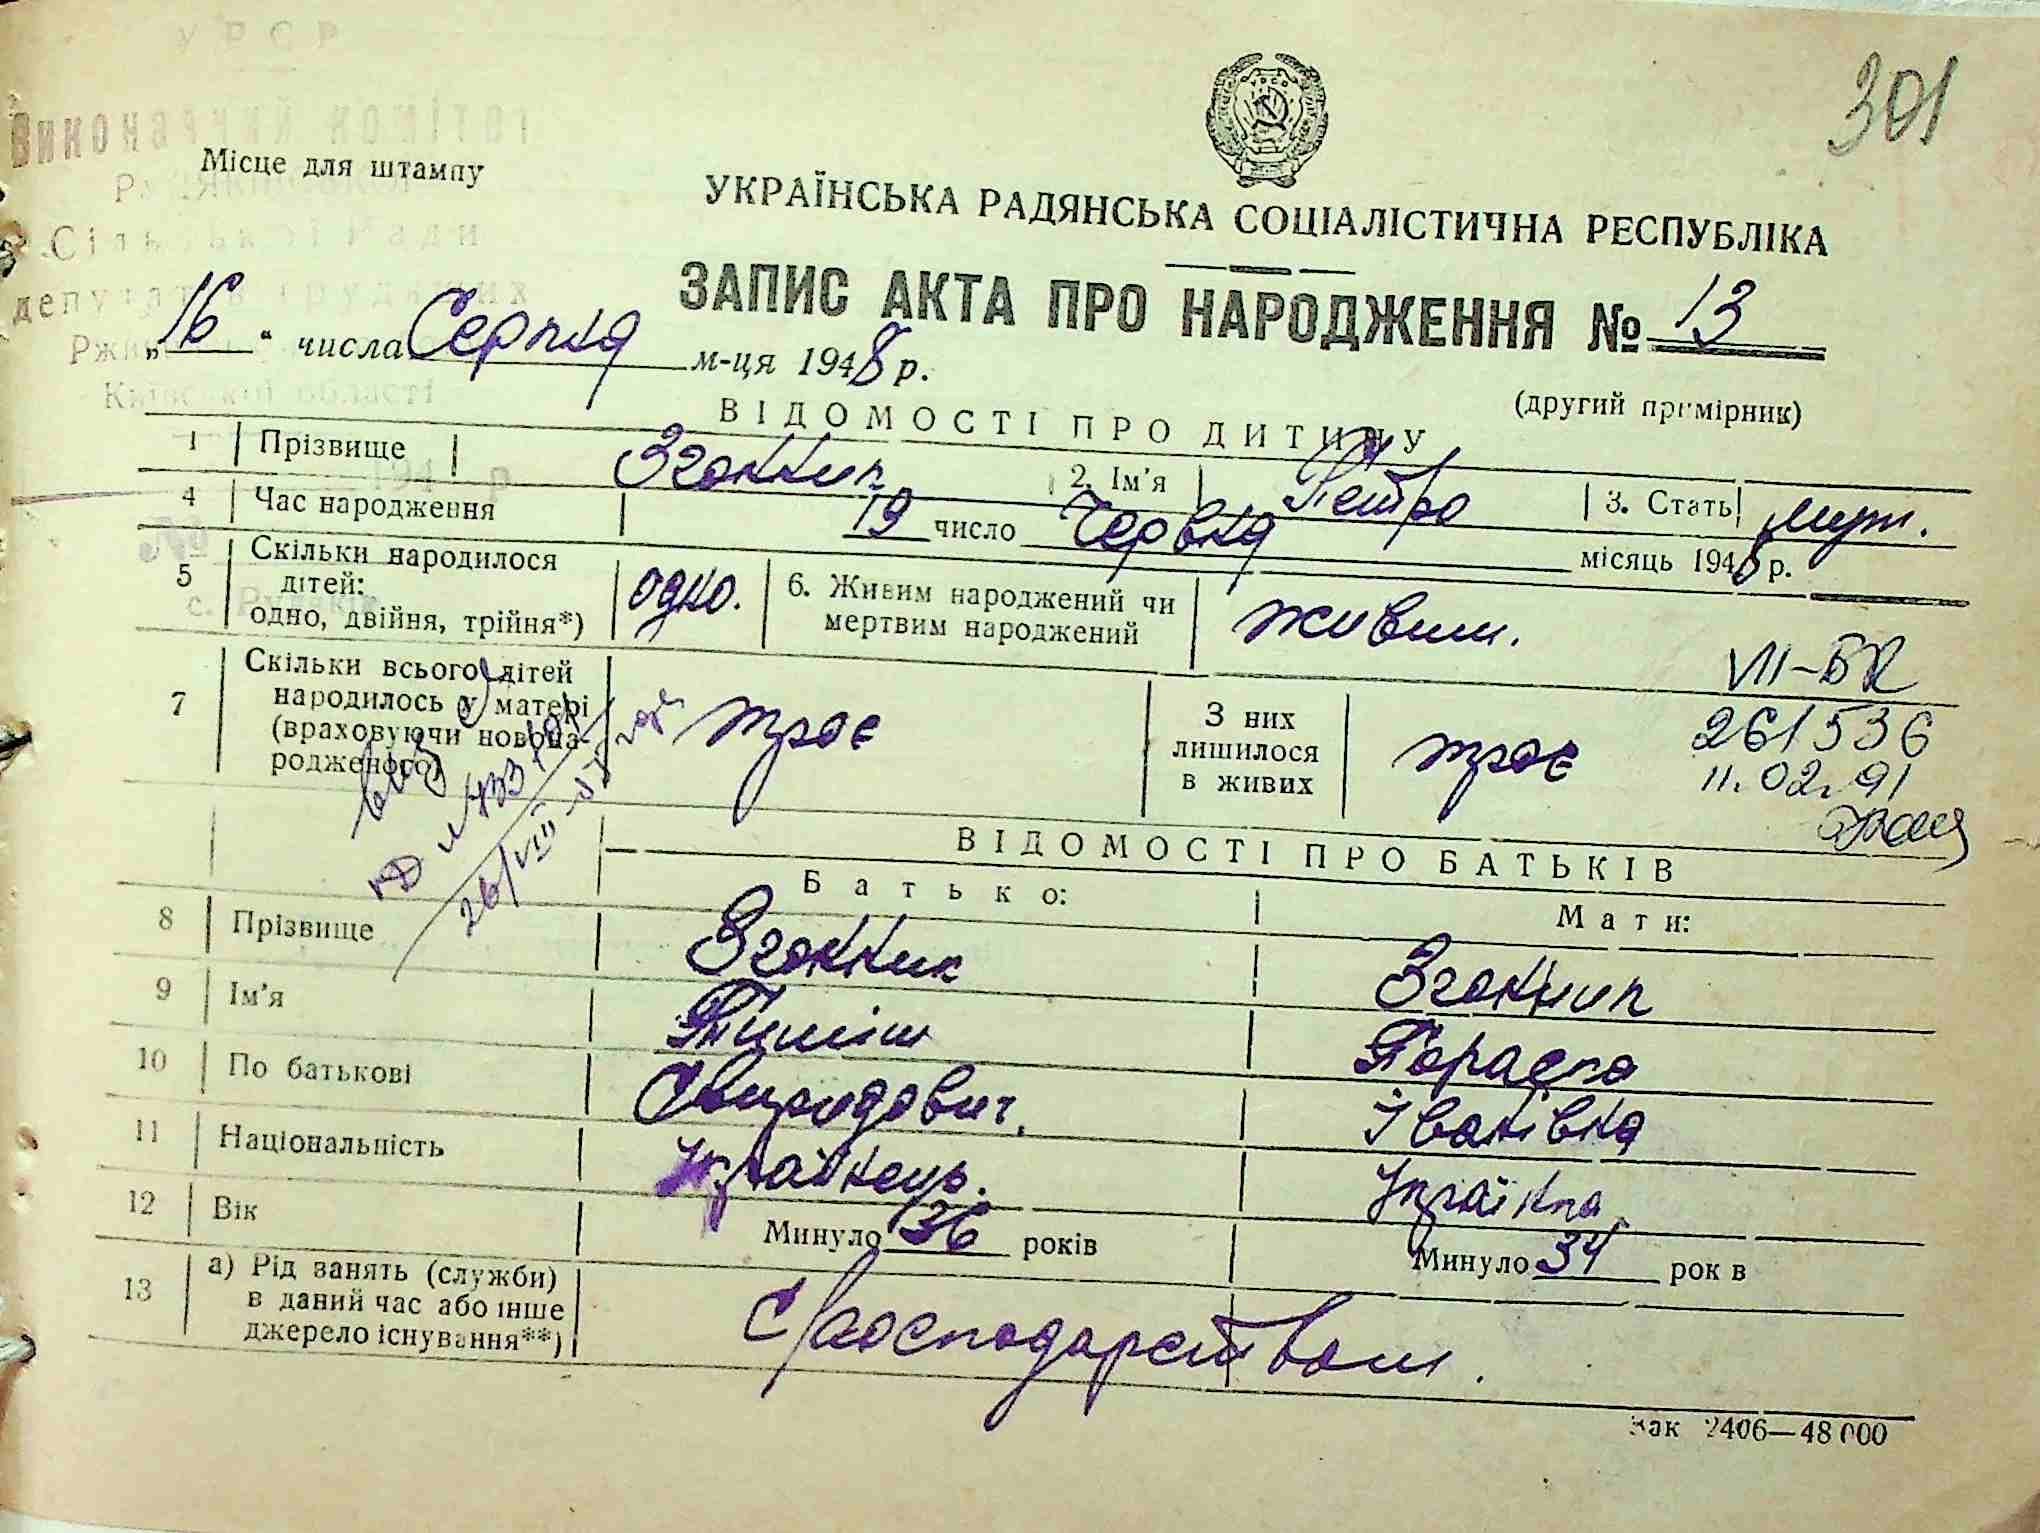 301
УРСР
Виконавчий комітет
Місце для штампу
Сільської Ради
депутатів трудящих
Київської області
УКРАЇНСЬКА РАДЯНСЬКА СОЦІАЛІСТИЧНА РЕСПУБЛІКА
ЗАПИС АКТА ПРО НАРОДЖЕННЯ № 13
„16“ числа Серпня м-ця 1948 р.
(другий примірник)
ВІДОМОСТІ ПРО ДИТИНУ
1 Прізвище Згонник 2. Ім'я Петро 3. Стать муж.
4 Час народження 19 число Червня місяць 1948 р.
5 Скільки народилося дітей: одно, двійня, трійня*) одно. 6. Живим народжений чи мертвим народжений живим.
7 Скільки всього дітей народилось у матері (враховуючи новонародженого) троє З них лишилося в живих троє
VII-БК
261536
11.02.91
ВІДОМОСТІ ПРО БАТЬКІВ
Батько: Мати:
8 Прізвище Згонник Згонник
9 Ім'я Тиміш Параска
10 По батькові Свиридович. Іванівна
11 Національність Українець. Українка
12 Вік Минуло 36 років Минуло 34 рок в
13 а) Рід занять (служби) в даний час або інше джерело існування**) с/господарством.
Зак 2406—48 000